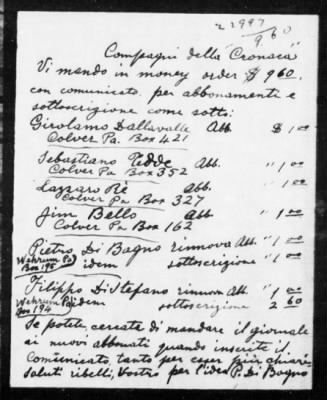 2 2997
9.60
Compagni della "Cronaca"
Vi mando in money order $ 9 60.
con comunicato, per abbonamenti e
sottoscrizione come sotto:
Girolamo Dallavalle Abb. $ 1.00
Colver Pa. Box 421
Sebastiano Fedde Abb. " 1.00
Colver Pa Box 352
Lazzaro Rè abb. " 1.00
Colver Pa Box 327
Jim Bello abb " 1.00
Colver Pa Box 162
Pietro Di Bagno rinnova Abb. " 1.00
Wehrum Pa idem sottoscrizione " 1.00
Box 195
Filippo DiStefano rinnova Abb. " 1.00
Wehrum Pa idem sottoscrizione 2 60
Box 194
Se potete, cercate di mandare il giornale
ai nuovi abbonati quando inserite il
comunicato, tanto per esser più chiari
saluti ribelli, vostro per l'idea P. Di Bagno